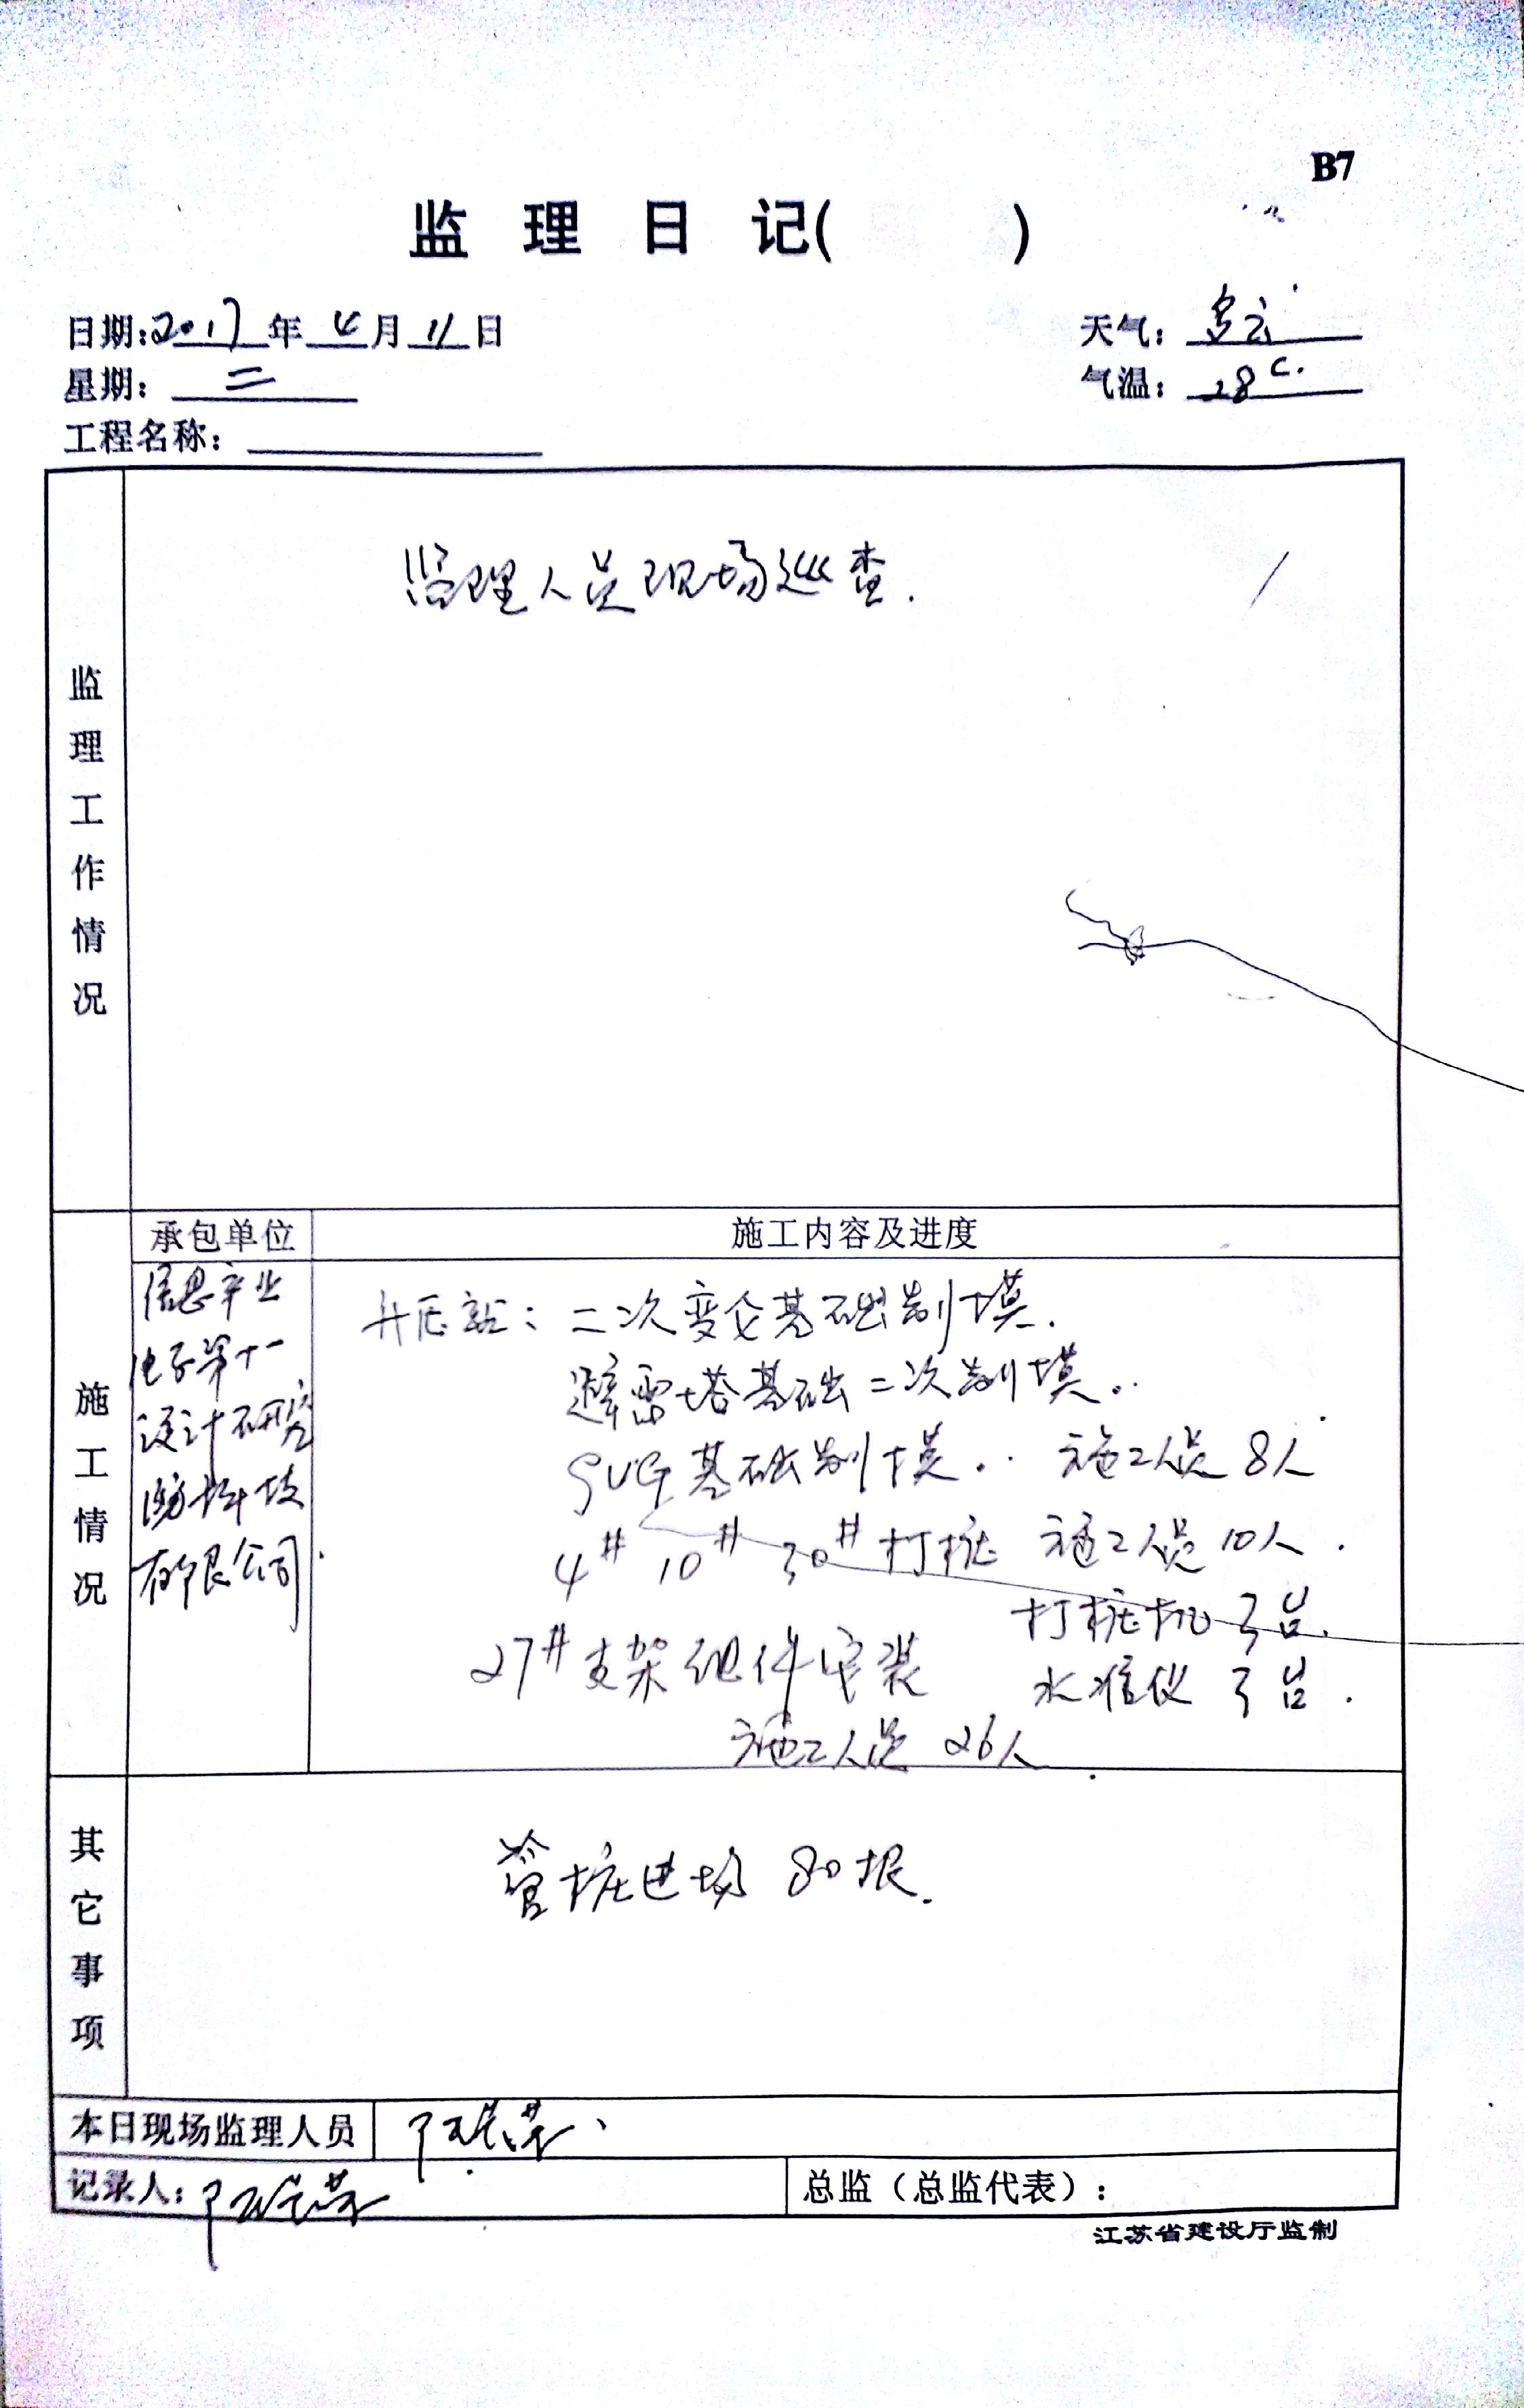 B7
监 理 日 记( )
日期:2017年4月11日
天气: 多云
星期: 二
气温: 28℃.
工程名称:
监理工作情况
监理人员现场巡查.
施工情况
承包单位
施工内容及进度
信息产业
电子第十一
设计研究
科技
有限公司.
升压站: 二次变仓基础制模.
避雷塔基础二次制模.
SVG基础制模. 施工人员 8人
4# 10# 30# 打桩 施工人员 10人.
打桩机 3台.
27# 支架组件安装
水准仪 3台.
施工人员 26人
其它事项
管桩进场 80根.
本日现场监理人员
记录人:
总监(总监代表):
江苏省建设厅监制